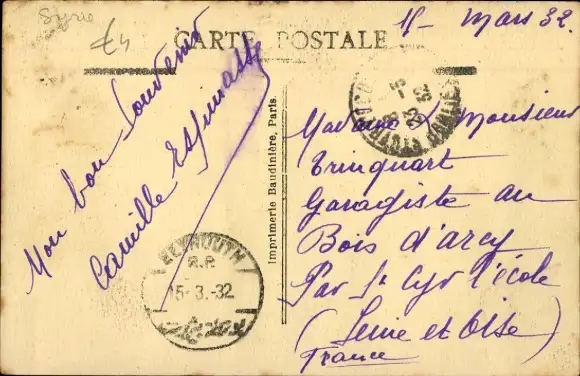 Syrie
£4
15 - Mars 32.
CARTE POSTALE
Mon bon Souvenir
Camille Espinasse
Imprimerie Baudinière, Paris
BEYROUTH
R.P.
15-3.-32
Madame & Monsieur
Trinquart
Garagiste au
Bois d'arcy
Par St Cyr l'école
(Seine et Oise)
France